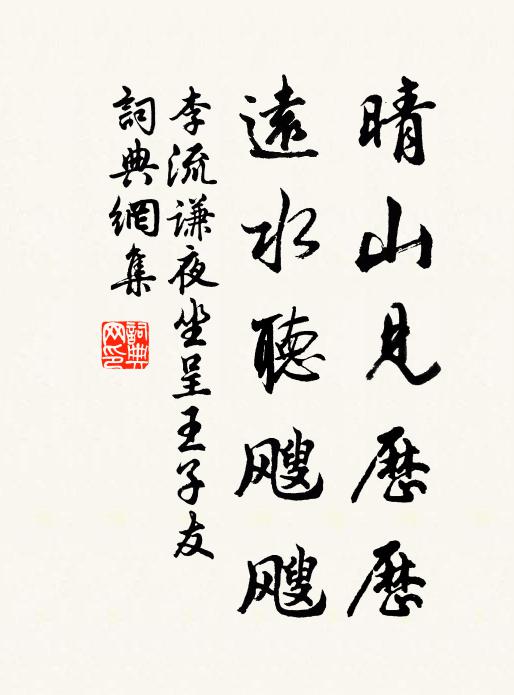 晴山見歷歷
遠水聽颼颼
李流謙夜坐呈王子友
詞典網集
詞典網印